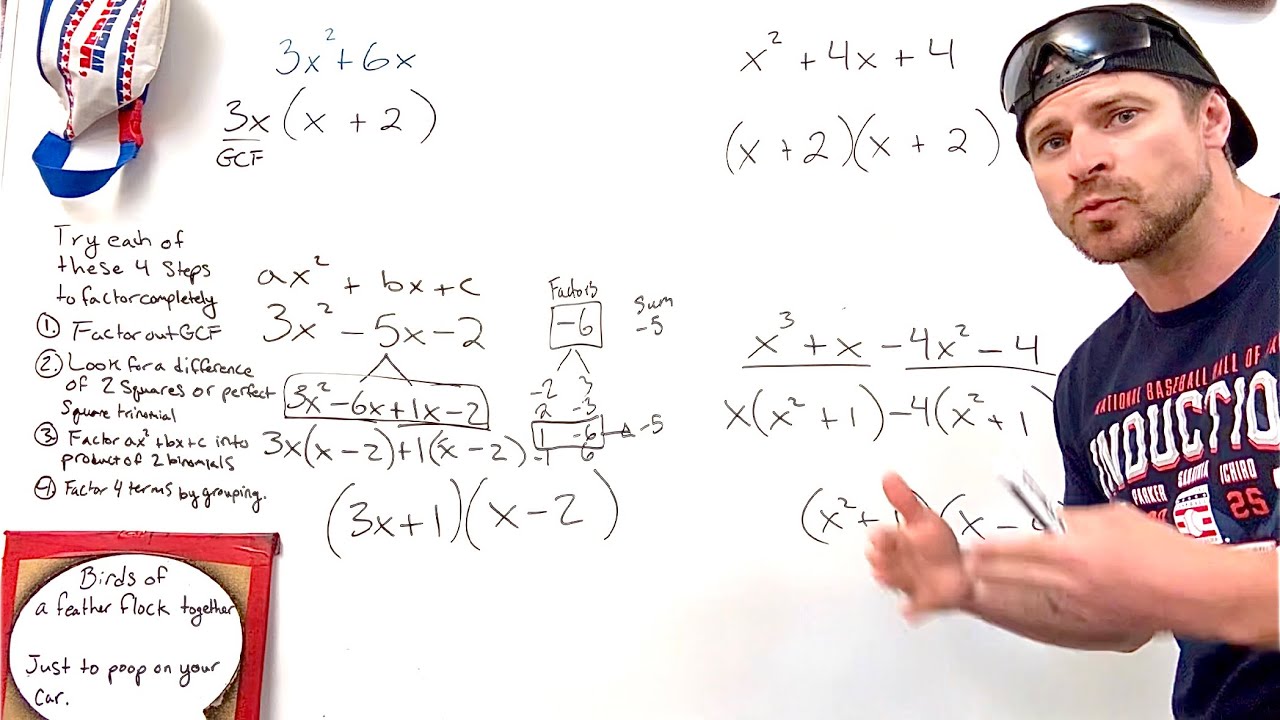 3x² + 6x
3x(x + 2)
GCF
x² + 4x + 4
(x + 2)(x + 2)
Try each of
these 4 steps
to factor completely
① Factor out GCF
② Look for a difference
of 2 squares or perfect
square trinomial
③ Factor ax² + bx + c into
product of 2 binomials
④ Factor 4 terms by grouping.
ax² + bx + c
3x² - 5x - 2
3x² - 6x + 1x - 2
3x(x - 2) + 1(x - 2)
(3x + 1)(x - 2)
Factors
Sum
-6
-5
-2 3
2 -3
1 -6 → -5
-1 6
x³ + x - 4x² - 4
x(x² + 1) - 4(x² + 1)
(x² + (x -
NATIONAL BASEBALL HALL OF
INDUCTIO
PARKER
SABATHIA
ICHIRO
25
Birds of
a feather flock together
Just to poop on your
car.